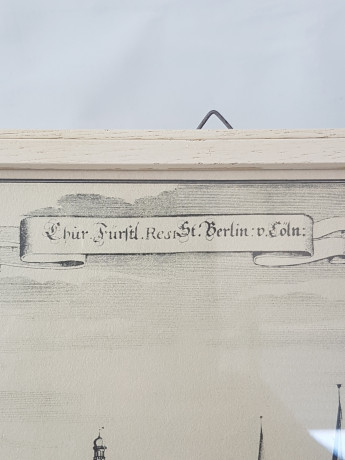 Chur. Fürstl. Resi St. Berlin: v. Cöln: